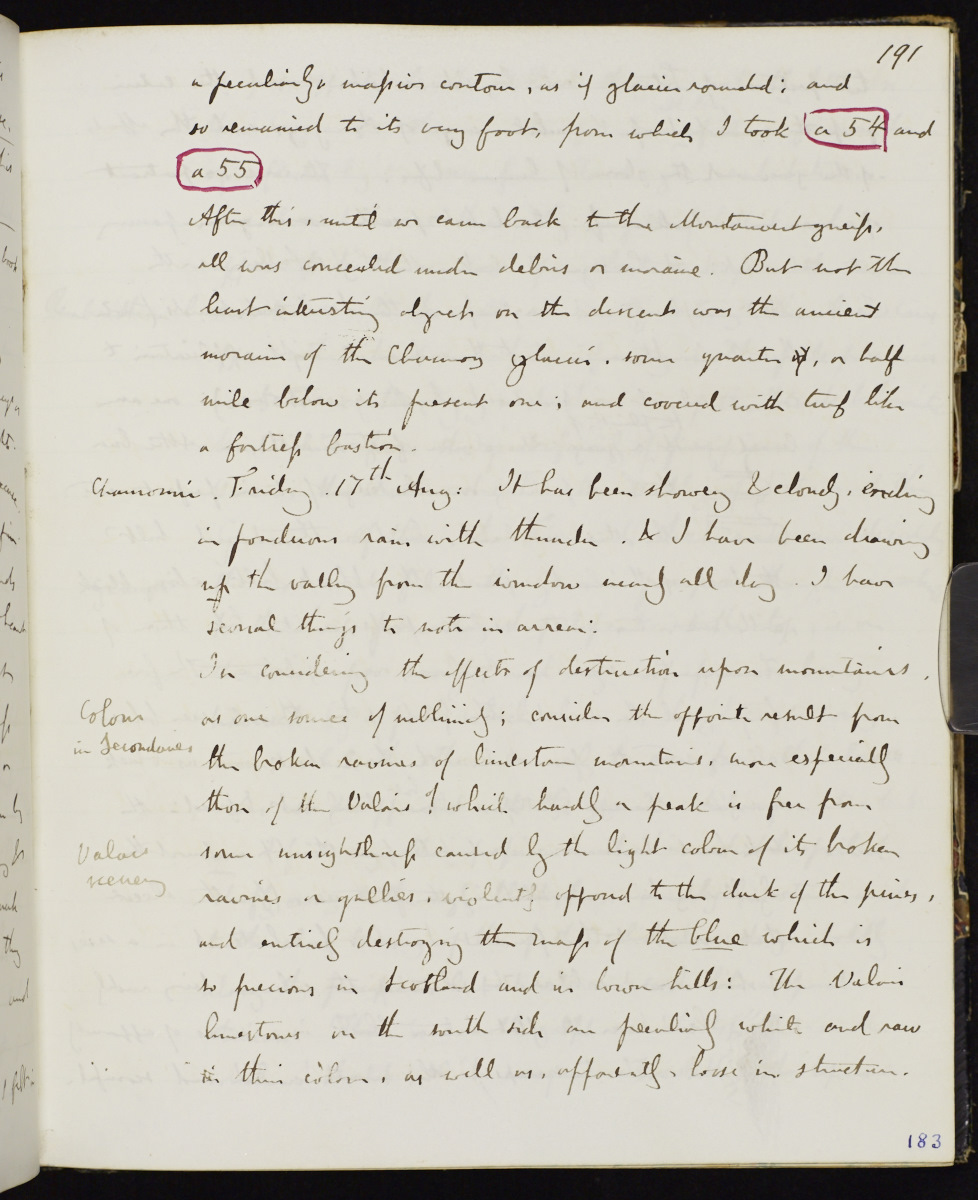 191
a peculiarly massive contour, as if glacier rounded; and
so remained to its very foot, from which I took a 54 and
a 55
After this, until we came back to the Montanvert gneiss,
all was concealed under debris or moraine. But not the
least interesting objects on the descent was the ancient
moraine of the Chamony glacier, some quarter of, or half
mile below its present one; and covered with turf like
a fortress bastion.
Chamouni. Friday. 17th Aug: It has been showery & cloudy, ending
in ponderous rain with thunder. & I have been drawing
up the valley from the window nearly all day. I have
several things to note in arrear:
In considering the effects of destruction upon mountains,
Colour
in Secondaries
as one source of sublimity; consider the opposite result from
the broken ravines of limestone mountains, more especially
those of the Valais of which hardly a peak is free from
Valais
scenery
some unsightliness caused by the light colour of its broken
ravines or gullies, violently opposed to the dark of the pines,
and entirely destroying the mass of the blue which is
so precious in Scotland and in lower hills: The Valais
limestones on the south side are peculiarly white and raw
in their colour, as well as, apparently, loose in structure.
183